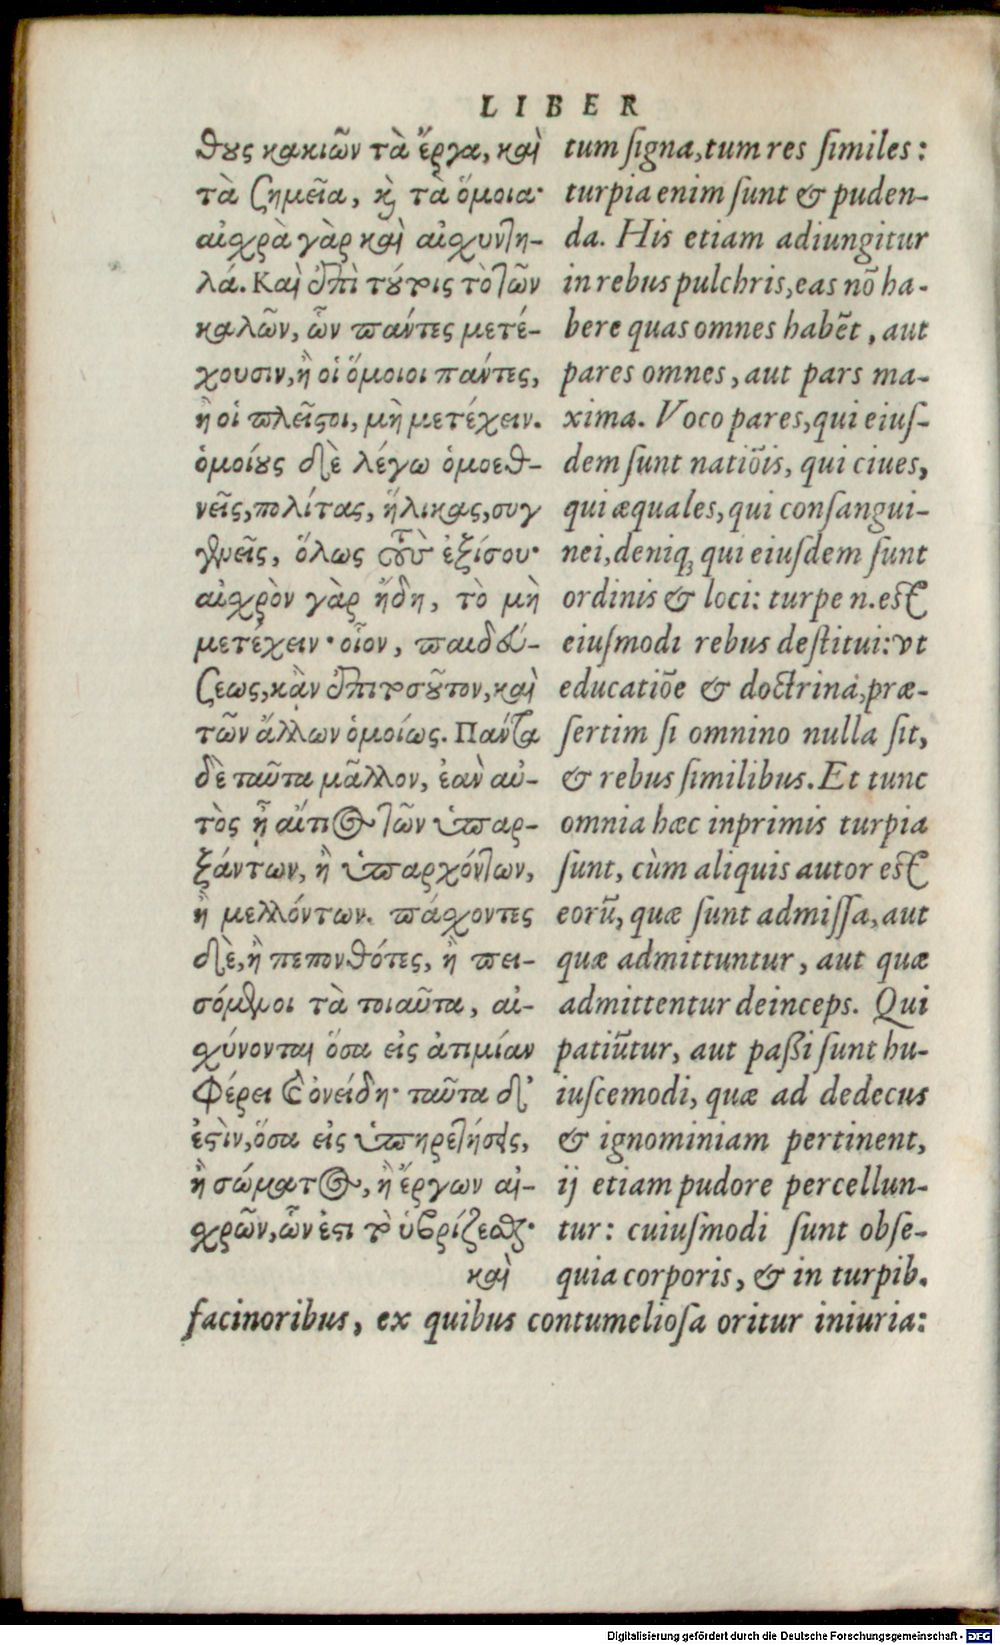 LIBER
θους κακιῶν τὰ ἔργα, καὶ
τὰ σημεῖα, κὶ τὰ ὅμοια·
αἰσχρὰ γὰρ καὶ αἰσχυντη-
λά. Καὶ ἐπὶ τούτοις τὸ τῶν
καλῶν, ὧν πάντες μετέ-
χουσιν, ἢ οἱ ὅμοιοι πάντες,
ἢ οἱ πλεῖστοι, μὴ μετέχειν.
ὁμοίους δὲ λέγω ὁμοεθ-
νεῖς, πολίτας, ἥλικας, συγ
γενεῖς, ὅλως τοὺς ἐξίσου·
αἰσχρὸν γὰρ ἤδη, τὸ μὴ
μετέχειν· οἷον, παιδεύ-
σεως, κᾂν ἐπιτοσοῦτον, καὶ
τῶν ἄλλων ὁμοίως. Πάντα
δὲ ταῦτα μᾶλλον, ἐὰν αὐ-
τὸς ᾖ αἴτιος τῶν ὑπαρ-
ξάντων, ἢ ὑπαρχόντων,
ἢ μελλόντων. πάσχοντες
δὲ, ἢ πεπονθότες, ἢ πει-
σόμενοι τὰ τοιαῦτα, αἰ-
σχύνονται ὅσα εἰς ἀτιμίαν
φέρει καὶ ὀνείδη· ταῦτα δ᾽
ἐστὶν, ὅσα εἰς ὑπηρετήσεις,
ἢ σώματος, ἢ ἔργων αἰ-
σχρῶν, ὧν ἐστι τὸ ὑβρίζεσθαι·
καὶ
tum ſigna, tum res ſimiles:
turpia enim ſunt & puden-
da. His etiam adiungitur
in rebus pulchris, eas nō ha-
bere quas omnes habēt, aut
pares omnes, aut pars ma-
xima. Voco pares, qui eiuſ-
dem ſunt natiōis, qui ciues,
qui æquales, qui conſangui-
nei, deniq; qui eiuſdem ſunt
ordinis & loci: turpe n. eſt
eiuſmodi rebus deſtitui: vt
educatiōe & doctrina, præ-
ſertim ſi omnino nulla ſit,
& rebus ſimilibus. Et tunc
omnia hæc inprimis turpia
ſunt, cùm aliquis autor eſt
eorū, quæ ſunt admiſſa, aut
quæ admittuntur, aut quæ
admittentur deinceps. Qui
patiūtur, aut paßi ſunt hu-
iuſcemodi, quæ ad dedecus
& ignominiam pertinent,
ij etiam pudore percellun-
tur: cuiuſmodi ſunt obſe-
quia corporis, & in turpib.
facinoribus, ex quibus contumelioſa oritur iniuria:
Digitalisierung gefördert durch die Deutsche Forschungsgemeinschaft - DFG